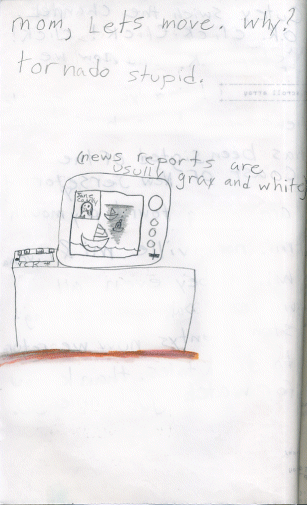 mom, Lets move. why?
tornado stupid.
(news reports are
usully gray and white)